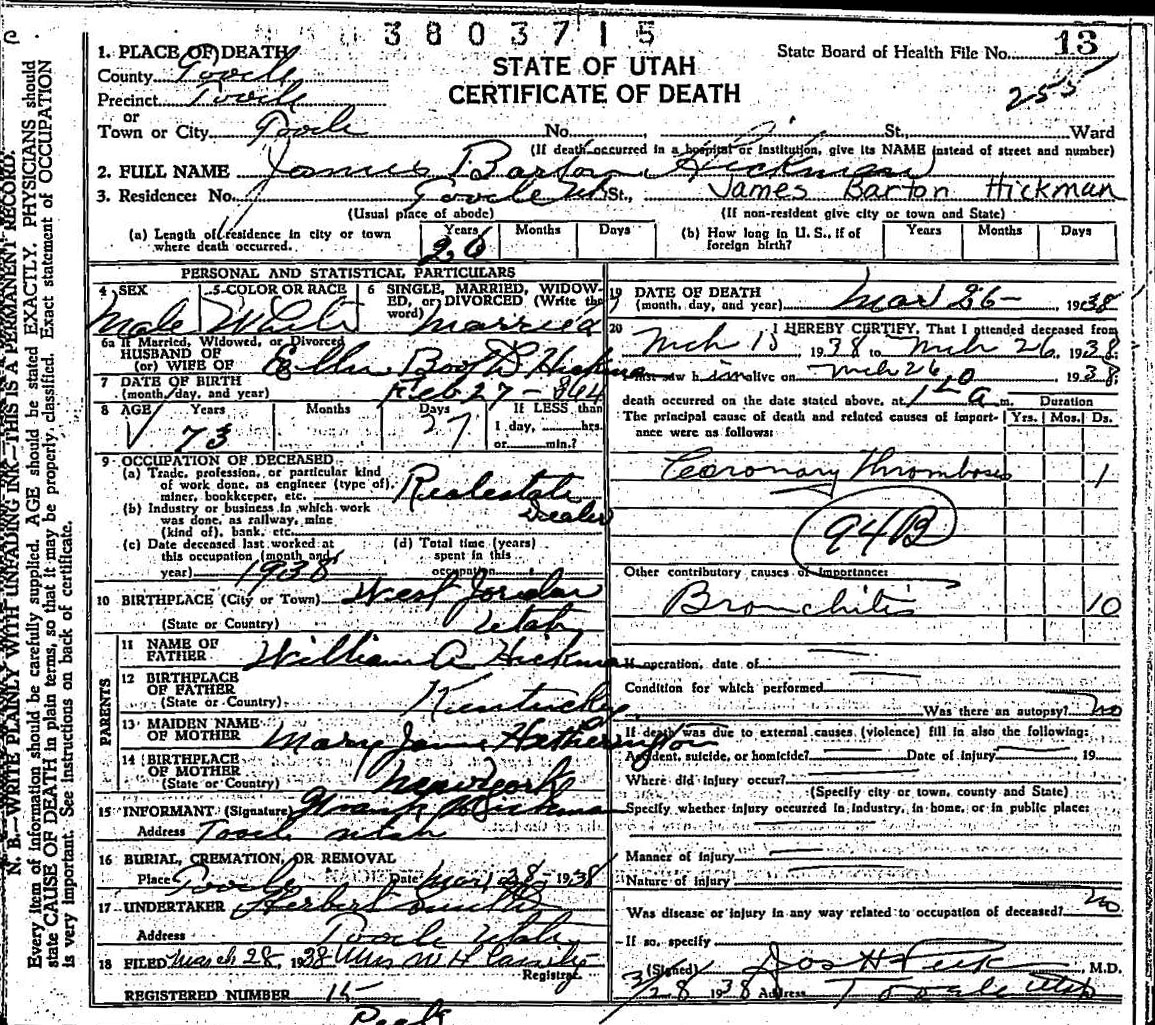 3803715
1. PLACE OF DEATH
State Board of Health File No. 13
County Tooele
STATE OF UTAH
Precinct Tooele
CERTIFICATE OF DEATH
255
or
Town or City Tooele No. St., Ward
(If death occurred in a hospital or institution, give its NAME instead of street and number)
2. FULL NAME James Barton Hickman
3. Residence: No. Tooele Ut St., James Barton Hickman
(Usual place of abode) (If non-resident give city or town and State)
(a) Length of residence in city or town where death occurred. Years 26 Months Days
(b) How long in U. S., if of foreign birth? Years Months Days
PERSONAL AND STATISTICAL PARTICULARS
4 SEX Male
5 COLOR OR RACE White
6 SINGLE, MARRIED, WIDOWED, or DIVORCED (Write the word) Married
6a If Married, Widowed, or Divorced
HUSBAND OF
(or) WIFE OF Ellen Hickman
7 DATE OF BIRTH
(month, day, and year) Feb 27 - 864
8 AGE Years 73 Months Days 27 If LESS than
1 day, hrs.
or min.?
9 OCCUPATION OF DECEASED
(a) Trade, profession, or particular kind
of work done, as engineer (type of),
miner, bookkeeper, etc. Realestate
Dealer
(b) Industry or business in which work
was done, as railway, mine
(kind of), bank, etc.
(c) Date deceased last worked at
this occupation (month and
year) 1938
(d) Total time (years)
spent in this
occupation
10 BIRTHPLACE (City or Town) West Jordan
(State or Country) Utah
PARENTS
11 NAME OF
FATHER William A Hickman
12 BIRTHPLACE
OF FATHER
(State or Country) Kentucky
13 MAIDEN NAME
OF MOTHER Mary Jane Hetherington
14 BIRTHPLACE
OF MOTHER
(State or Country) New York
15 INFORMANT (Signature) Hickman
Address Tooele Utah
16 BURIAL, CREMATION, OR REMOVAL
Place Tooele Date Mar 28 - 1938
17 UNDERTAKER Herbert Smith
Address Tooele Utah
18 FILED March 28, 1938 Mrs M H
Registrar.
REGISTERED NUMBER 15
19 DATE OF DEATH
(month, day, and year) Mar 26 - 1938
20 I HEREBY CERTIFY, That I attended deceased from
Mch 15, 1938 to Mch 26, 1938;
I last saw him alive on Mch 26 1938
death occurred on the date stated above, at a m. Duration
The principal cause of death and related causes of importance were as follows: Yrs. Mos. Ds.
Coronary Thrombosis 1
94B
Other contributory causes of importance:
Bronchitis 10
If operation, date of
Condition for which performed
Was there an autopsy? no
If death was due to external causes (violence) fill in also the following:
Accident, suicide, or homicide? Date of injury 19
Where did injury occur?
(Specify city or town, county and State)
Specify whether injury occurred in industry, in home, or in public place:
Manner of injury
Nature of injury
Was disease or injury in any way related to occupation of deceased? no
If so, specify
(Signed) Jos H Peck M.D.
3/28 1938 Address Tooele Utah
N. B.—WRITE PLAINLY WITH UNFADING INK—THIS IS A PERMANENT RECORD.
Every item of information should be carefully supplied. AGE should be stated EXACTLY. PHYSICIANS should
state CAUSE OF DEATH in plain terms, so that it may be properly classified. Exact statement of OCCUPATION
is very important. See instructions on back of certificate.